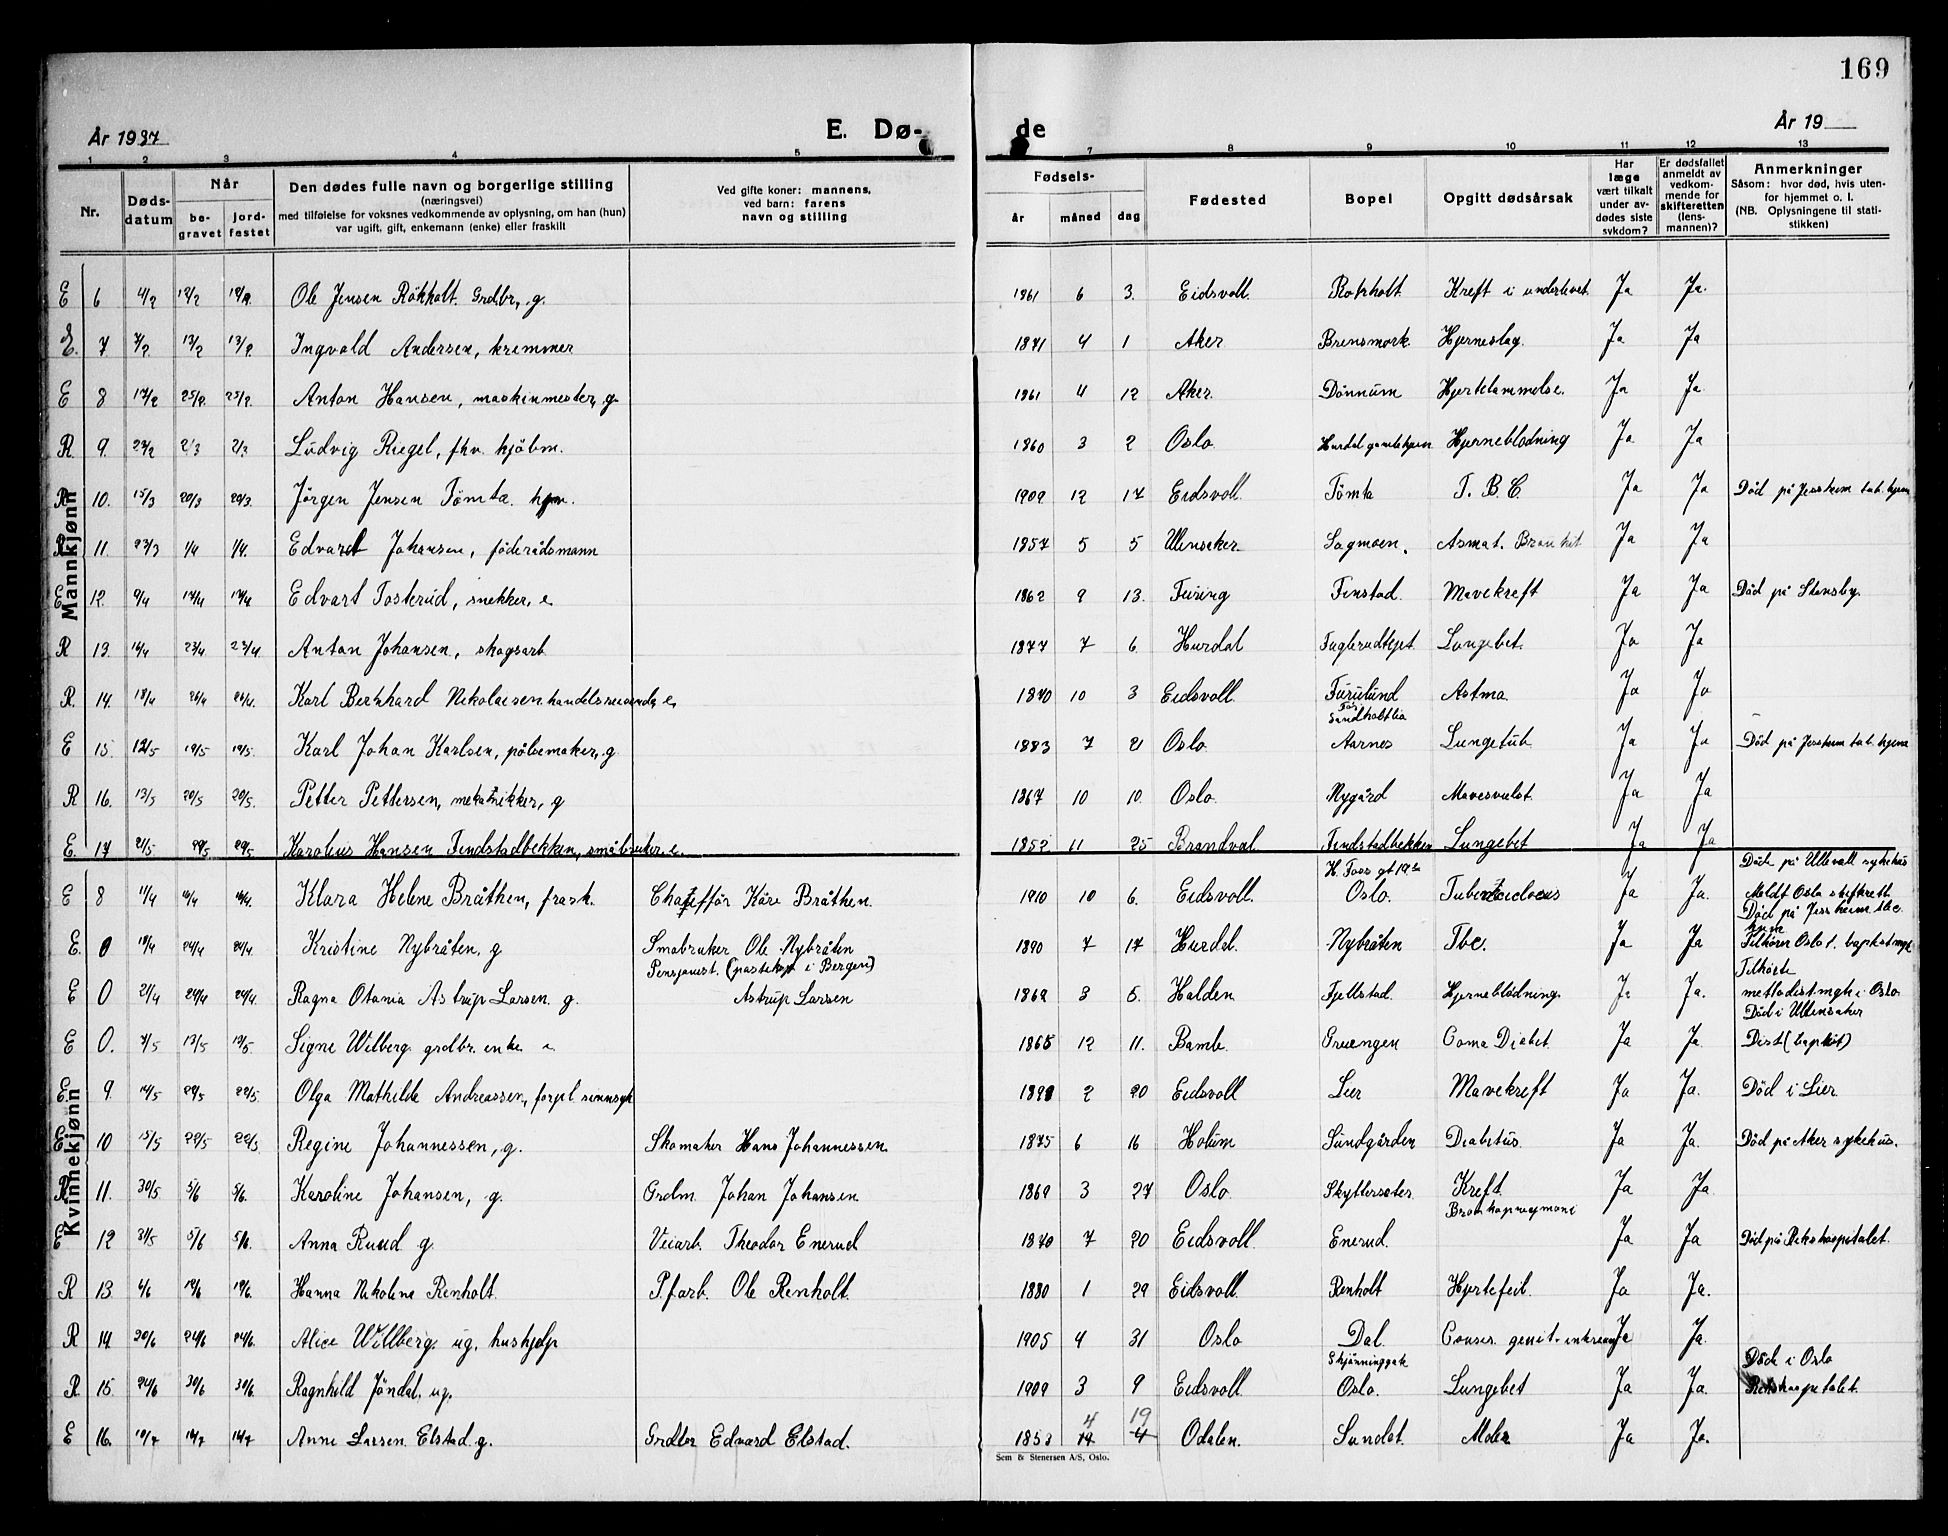 169
År 1937
E. Dø-
de
År 19
1 2 3 4 5 7 8 9 10 11 12 13
Nr.
Døds-datum
Når
be-gravet
jord-festet
Den dødes fulle navn og borgerlige stilling
(næringsvei)
med tilføielse for voksnes vedkommende av oplysning, om han (hun)
var ugift, gift, enkemann (enke) eller fraskilt
Ved gifte koner: mannens,
ved barn: farens
navn og stilling
Fødsels-
år måned dag
Fødested
Bopel
Opgitt dødsårsak
Har læge vært tilkalt under av-dødes siste sykdom?
Er dødsfallet anmeldt av vedkom-mende for skifteretten (lens-mannen)?
Anmerkninger
Såsom: hvor død, hvis uten-for hjemmet o. l.
(NB. Oplysningene til stati-stikken)
Mannkjønn
E 6 4/2 12/2 Ole Jensen Rökholt Grdbr, g. 1861 6 3. Eidsvoll Rokholt Kreft i underlivet. Ja Ja.
E. 7 7/2 13/2 13/2 Ingvald Andersen, kremmer 1871 4 1 Aker Brensmork Hjerneslag. Ja Ja
E 8 17/2 25/2 25/2 Anton Hansen, maskinmester, g. 1861 4 12 Aker. Dönnum Hjertelammelse. Ja Ja
R. 9. 2/3 2/3 Ludvig Riegel, fhv. kjöbm. 1860 3 2 Oslo Hurdal gamlehjem Hjerneblödning Ja Ja
R 10. 15/3 20/3 20/3 Jörgen Jensen Tömta 1909 12 17 Eidsvoll Tömta T. B. C. Ja Ja Död på Jessheim tub. hjem
R 11. 23/3 1/4 1/4. Edvard Johansen, föderådsmann 1857 5 5 Ullensaker Sagmoen. Asmat. Bronkit Ja Ja
E 12. 9/4 17/4 17/4 Edvart Tosterud, snekker, e 1862 9 13. Feiring Finstad. Mavekreft Ja Ja Död på Stensby.
R 13. 16/4 23/4 23/4. Anton Johansen, skogsarb. 1877 7 6 Hurdal Fuglerudtejet Lungebet. Ja Ja
R. 14. 18/4 26/4 26/4. Karl Bernhard Nikolaisen handelsreisende, e. 1870 10 3 Eidsvoll Furulund Astma Ja Ja
Sandholtlia
E 15. 12/5 19/5 19/5. Karl Johan Karlsen, pölsemaker, g 1883 7 21 Oslo Aarnes Lungetub. Ja Ja Död på Jessheim tub. hjem
R 16. 13/5 20/5 20/5. Petter Pettersen, g 1867 10 10. Oslo. Nygård Mavesvulst Ja Ja
E. 17 21/5 29/5 29/5. Karolius Hansen Findstadbekken, småbruker, e. 1852 11 25 Brandval Findstadbekken Lungebet Ja Ja
Kvinnekjønn
Döde på Ullevåll sykehus
E 8 11/4 16/4 16/4. Klara Helene Bråthen, frask. Chaufför Kåre Bråthen. 1910 10 6. Eidsvoll. Oslo. Tuberculosis Ja Ja. Meldt Oslo skifterett
Död på Jessheim tbc. hjem
E. 0 18/4 24/4 24/4. Kristine Nybråten, g Småbruker Ole Nybråten 1890 7 17 Hurdal. Nybråten Tbc. Ja Ja Tilhörer Oslo 1. baptistmgh
Pensjonist. (pastekst i Bergen)
Tilhörte
E 0 21/4 24/4 24/4. Ragna Otania Astrup Larsen g. Astrup Larsen 1869 3 5. Halden Fjellstad. Hjerneblödning. Ja Ja. metodistmgh i Oslo
Död i Ullensaker
E 0. 7/5 13/5 13/5. Signe Wilberg grdbr. enke 1865 12 11. Bamle Gruengen Coma Diabet. Ja Ja. Dist (baptist)
E. 9. 14/5 22/5 22/5. Olga Mathilde Andreassen, forpl. sinnsyk 1891 2 20 Eidsvoll Lier Mavekreft Ja Ja. Död i Lier.
E 10 15/5 22/5 22/5 Regine Johannessen, g. Skomaker Hans Johannessen. 1875 6 16 Holum Sundgården Diabetus. Ja Ja. Död på Aker sykehus.
R 11. 30/5 5/6 5/6. Karoline Johansen, g. Grdm. Johan Johansen 1869 3 27 Oslo Skyttersæter Kreft. Ja Ja.
E 12 31/5 5/6 5/6. Anna Ruud g. Veiarb. Theodor Enerud 1870 7 20 Eidsvoll Enerud. Bronkopneumoni Ja Ja Död på Rikshospitalet.
R 13. 6/6 12/6 12/6. Hanna Nikoline Renholt. P.f.arb. Ole Renholt. 1880 1 29 Eidsvoll. Renholt Hjertefeil. Ja Ja.
R 14 20/6 24/6 24/6. Alice Willberg. ug. hushjelp 1905 4 31 Oslo Dal Cancer. genit. Ja Ja.
Skjønninggate
Döde i Oslo
R. 15. 24/6 30/6 30/6. Ragnhild Jöndal, ug. 1909 3 9 Eidsvoll Oslo. Lungebet Ja Ja. Rikshospitalet.
4 19
E 16. 10/7 14/7 14/7 Anne Larsen Elstad g. Grdbr Edvard Elstad. 1853 Odalen. Sundet. Alder Ja Ja.
Sem & Stenersen A/S, Oslo.